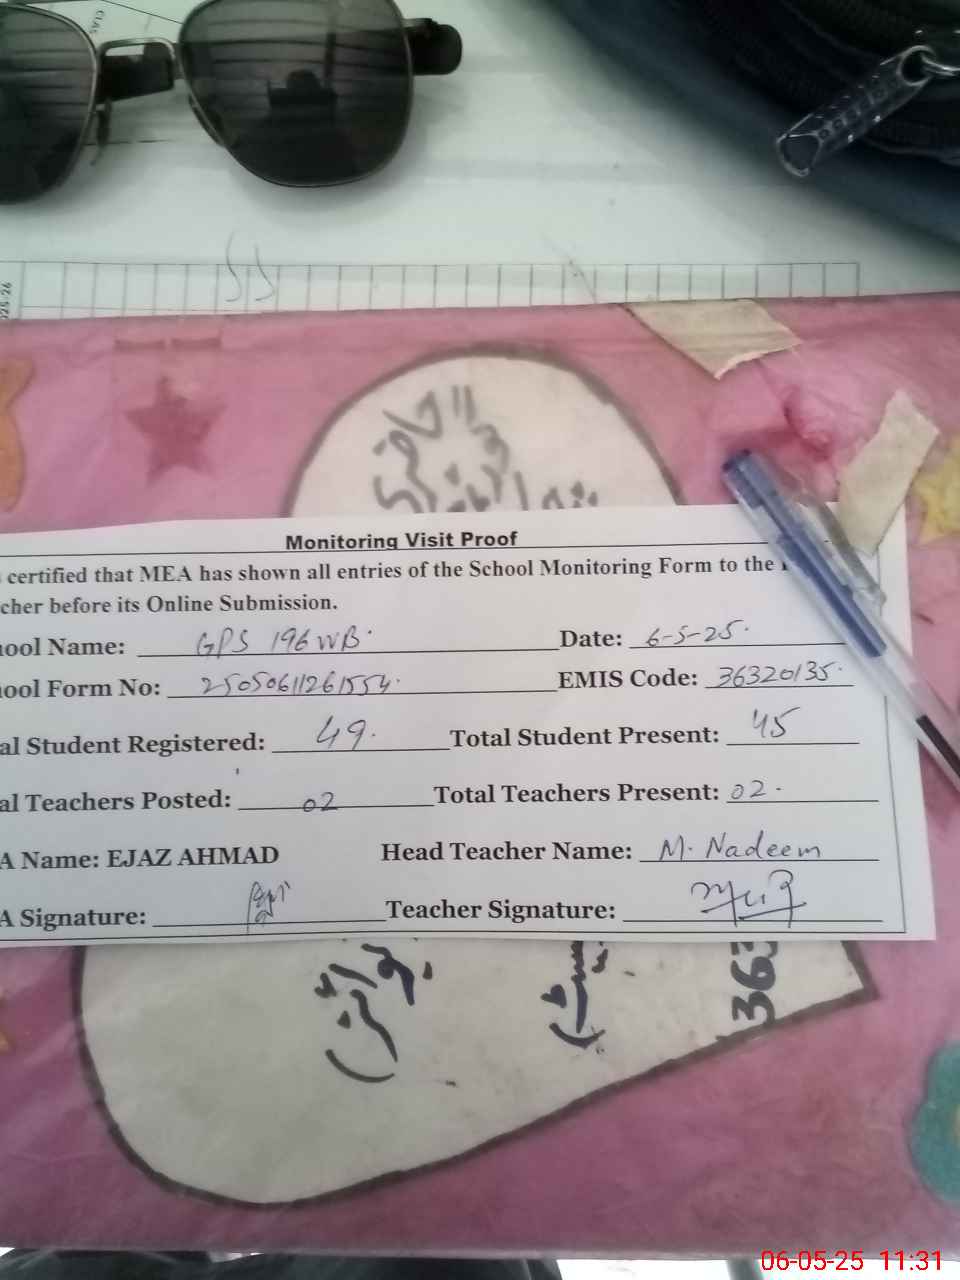 CLAS
025-26
Monitoring Visit Proof
certified that MEA has shown all entries of the School Monitoring Form to the
cher before its Online Submission.
ool Name: GPS 196 WB Date: 6-5-25.
ool Form No: 25050611261554. EMIS Code: 36320135.
al Student Registered: 49. Total Student Present: 45
al Teachers Posted: 02 Total Teachers Present: 02.
A Name: EJAZ AHMAD Head Teacher Name: M. Nadeem
A Signature: Teacher Signature:
363
06-05-25 11:31